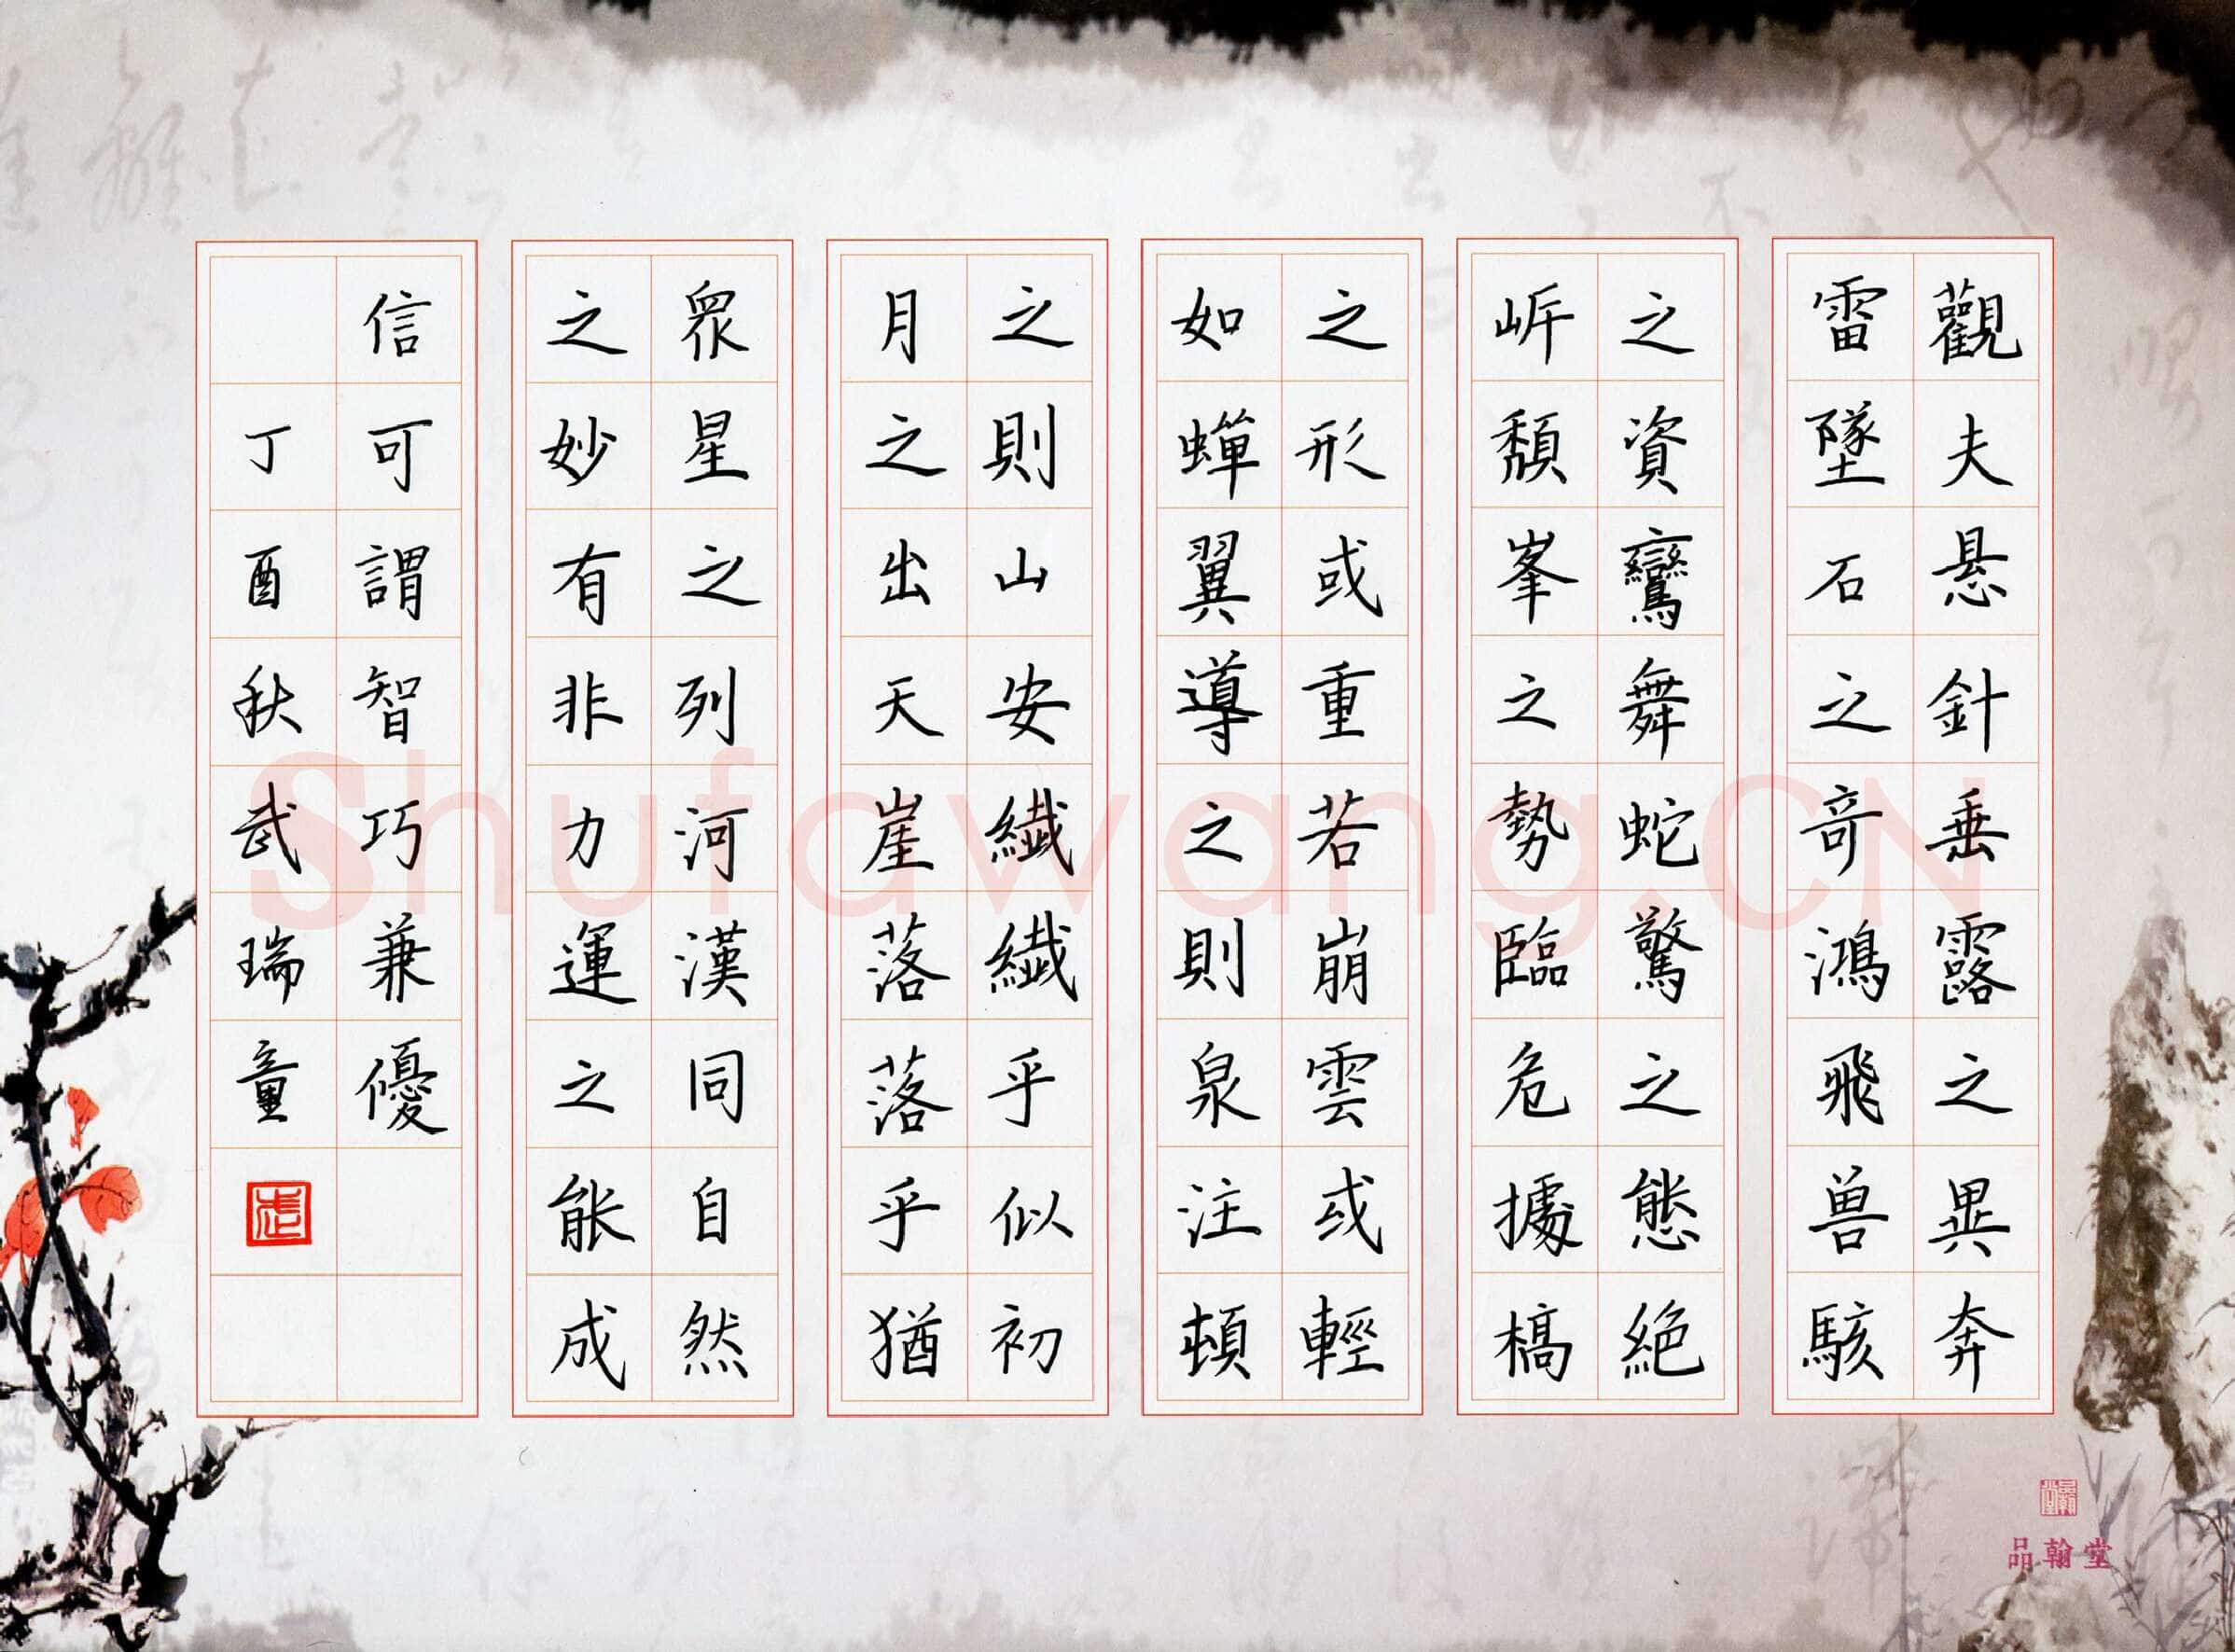 觀夫悬針垂露之異奔
雷墜石之奇鴻飛兽駭
之資鸞舞蛇驚之態絕
岓頽峯之勢臨危據槁
之形或重若崩雲或輕
如蟬翼導之則泉注頓
之則山安纖纖乎似初
月之出天崖落落乎猶
眾星之列河漢同自然
之妙有非力運之能成
信可謂智巧兼優
丁酉秋武瑞童
武
Shufawang.CN
品翰堂